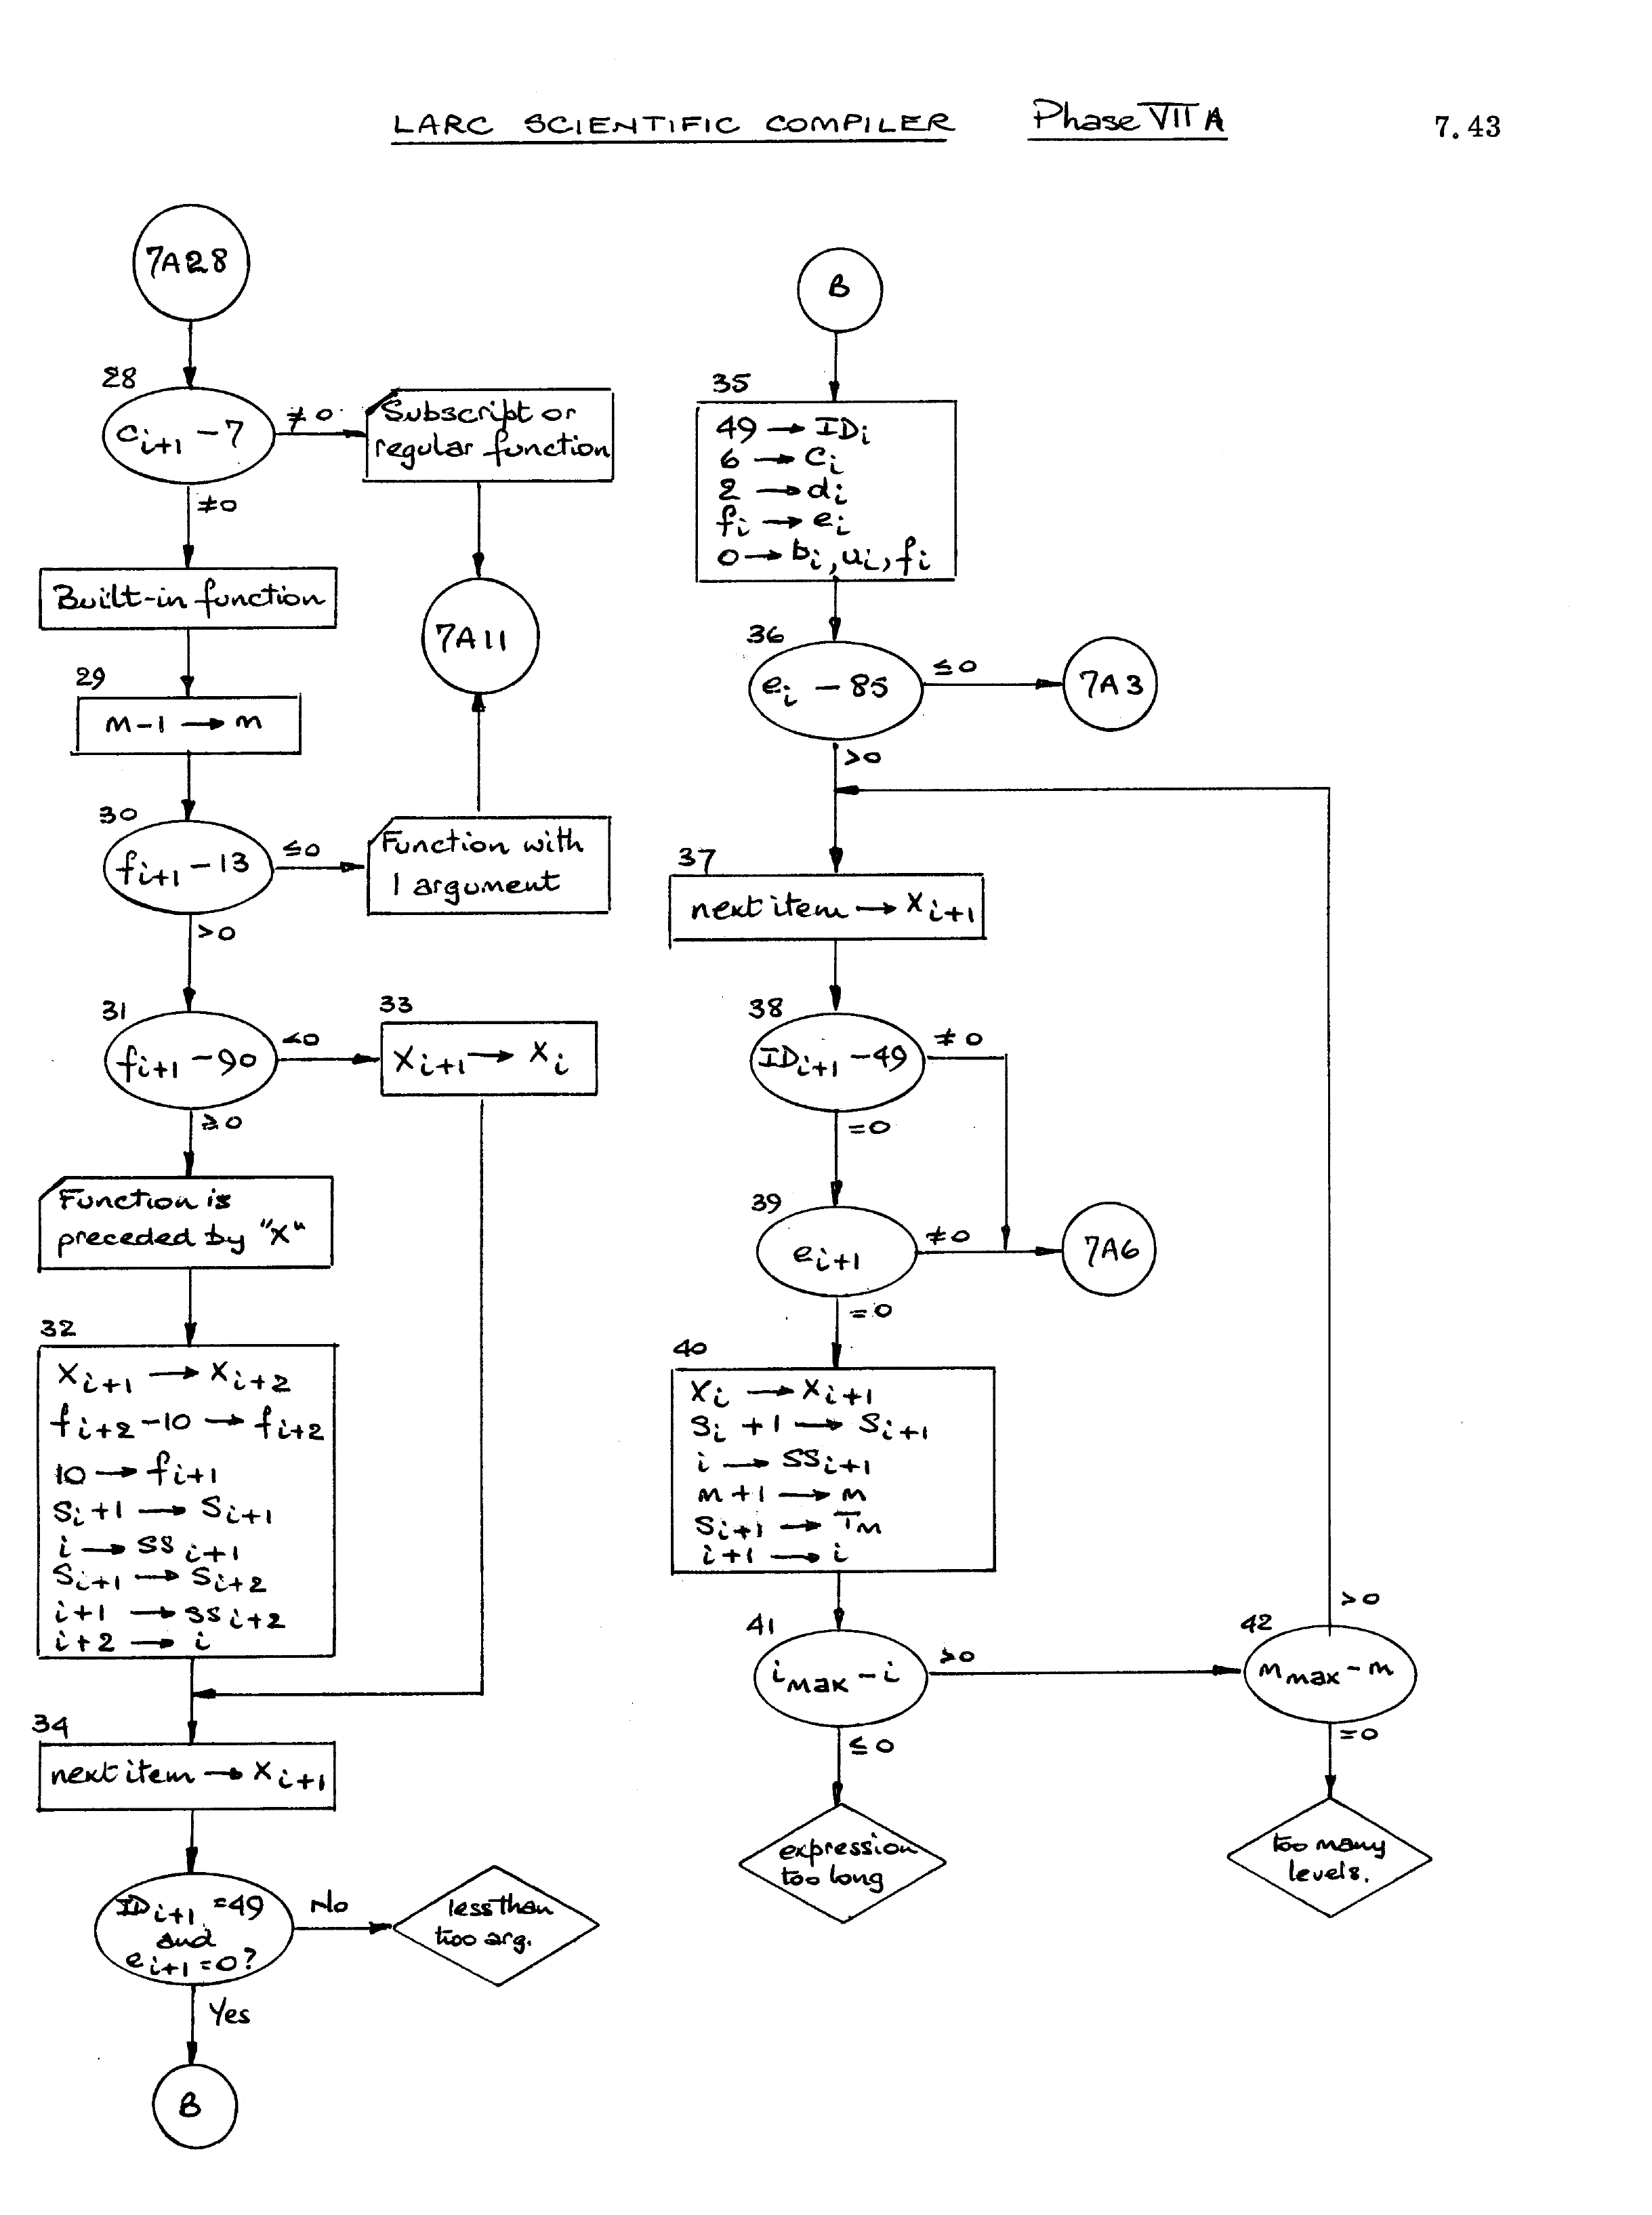 LARC SCIENTIFIC COMPILER Phase VII A 7.43
7A28
28
c_{i+1} − 7
≠0
Subscript or
regular function
≠0
Built-in function
7A11
29
m−1 → m
30
f_{i+1} − 13
≤0
Function with
1 argument
>0
31
f_{i+1} − 90
<0
33
X_{i+1} → X_i
≥0
Function is
preceded by "X"
32
X_{i+1} → X_{i+2}
f_{i+2} −10 → f_{i+2}
10 → f_{i+1}
S_i+1 → S_{i+1}
i → SS_{i+1}
S_{i+1} → S_{i+2}
i+1 → SS_{i+2}
i+2 → i
34
next item → X_{i+1}
ID_{i+1} =49
and
e_{i+1} =0?
No
less than
too arg.
Yes
B
B
35
49 → ID_i
6 → c_i
2 → d_i
f_i → e_i
0 → b_i, u_i, f_i
36
e_i − 85
≤0
7A3
>0
37
next item → X_{i+1}
38
ID_{i+1} −49
≠0
=0
39
e_{i+1}
≠0
7A6
=0
40
X_i → X_{i+1}
S_i +1 → S_{i+1}
i → SS_{i+1}
m+1 → m
S_{i+1} → T_m
i+1 → i
41
i_max − i
>0
42
m_max − m
>0
≤0
=0
expression
too long
too many
levels.